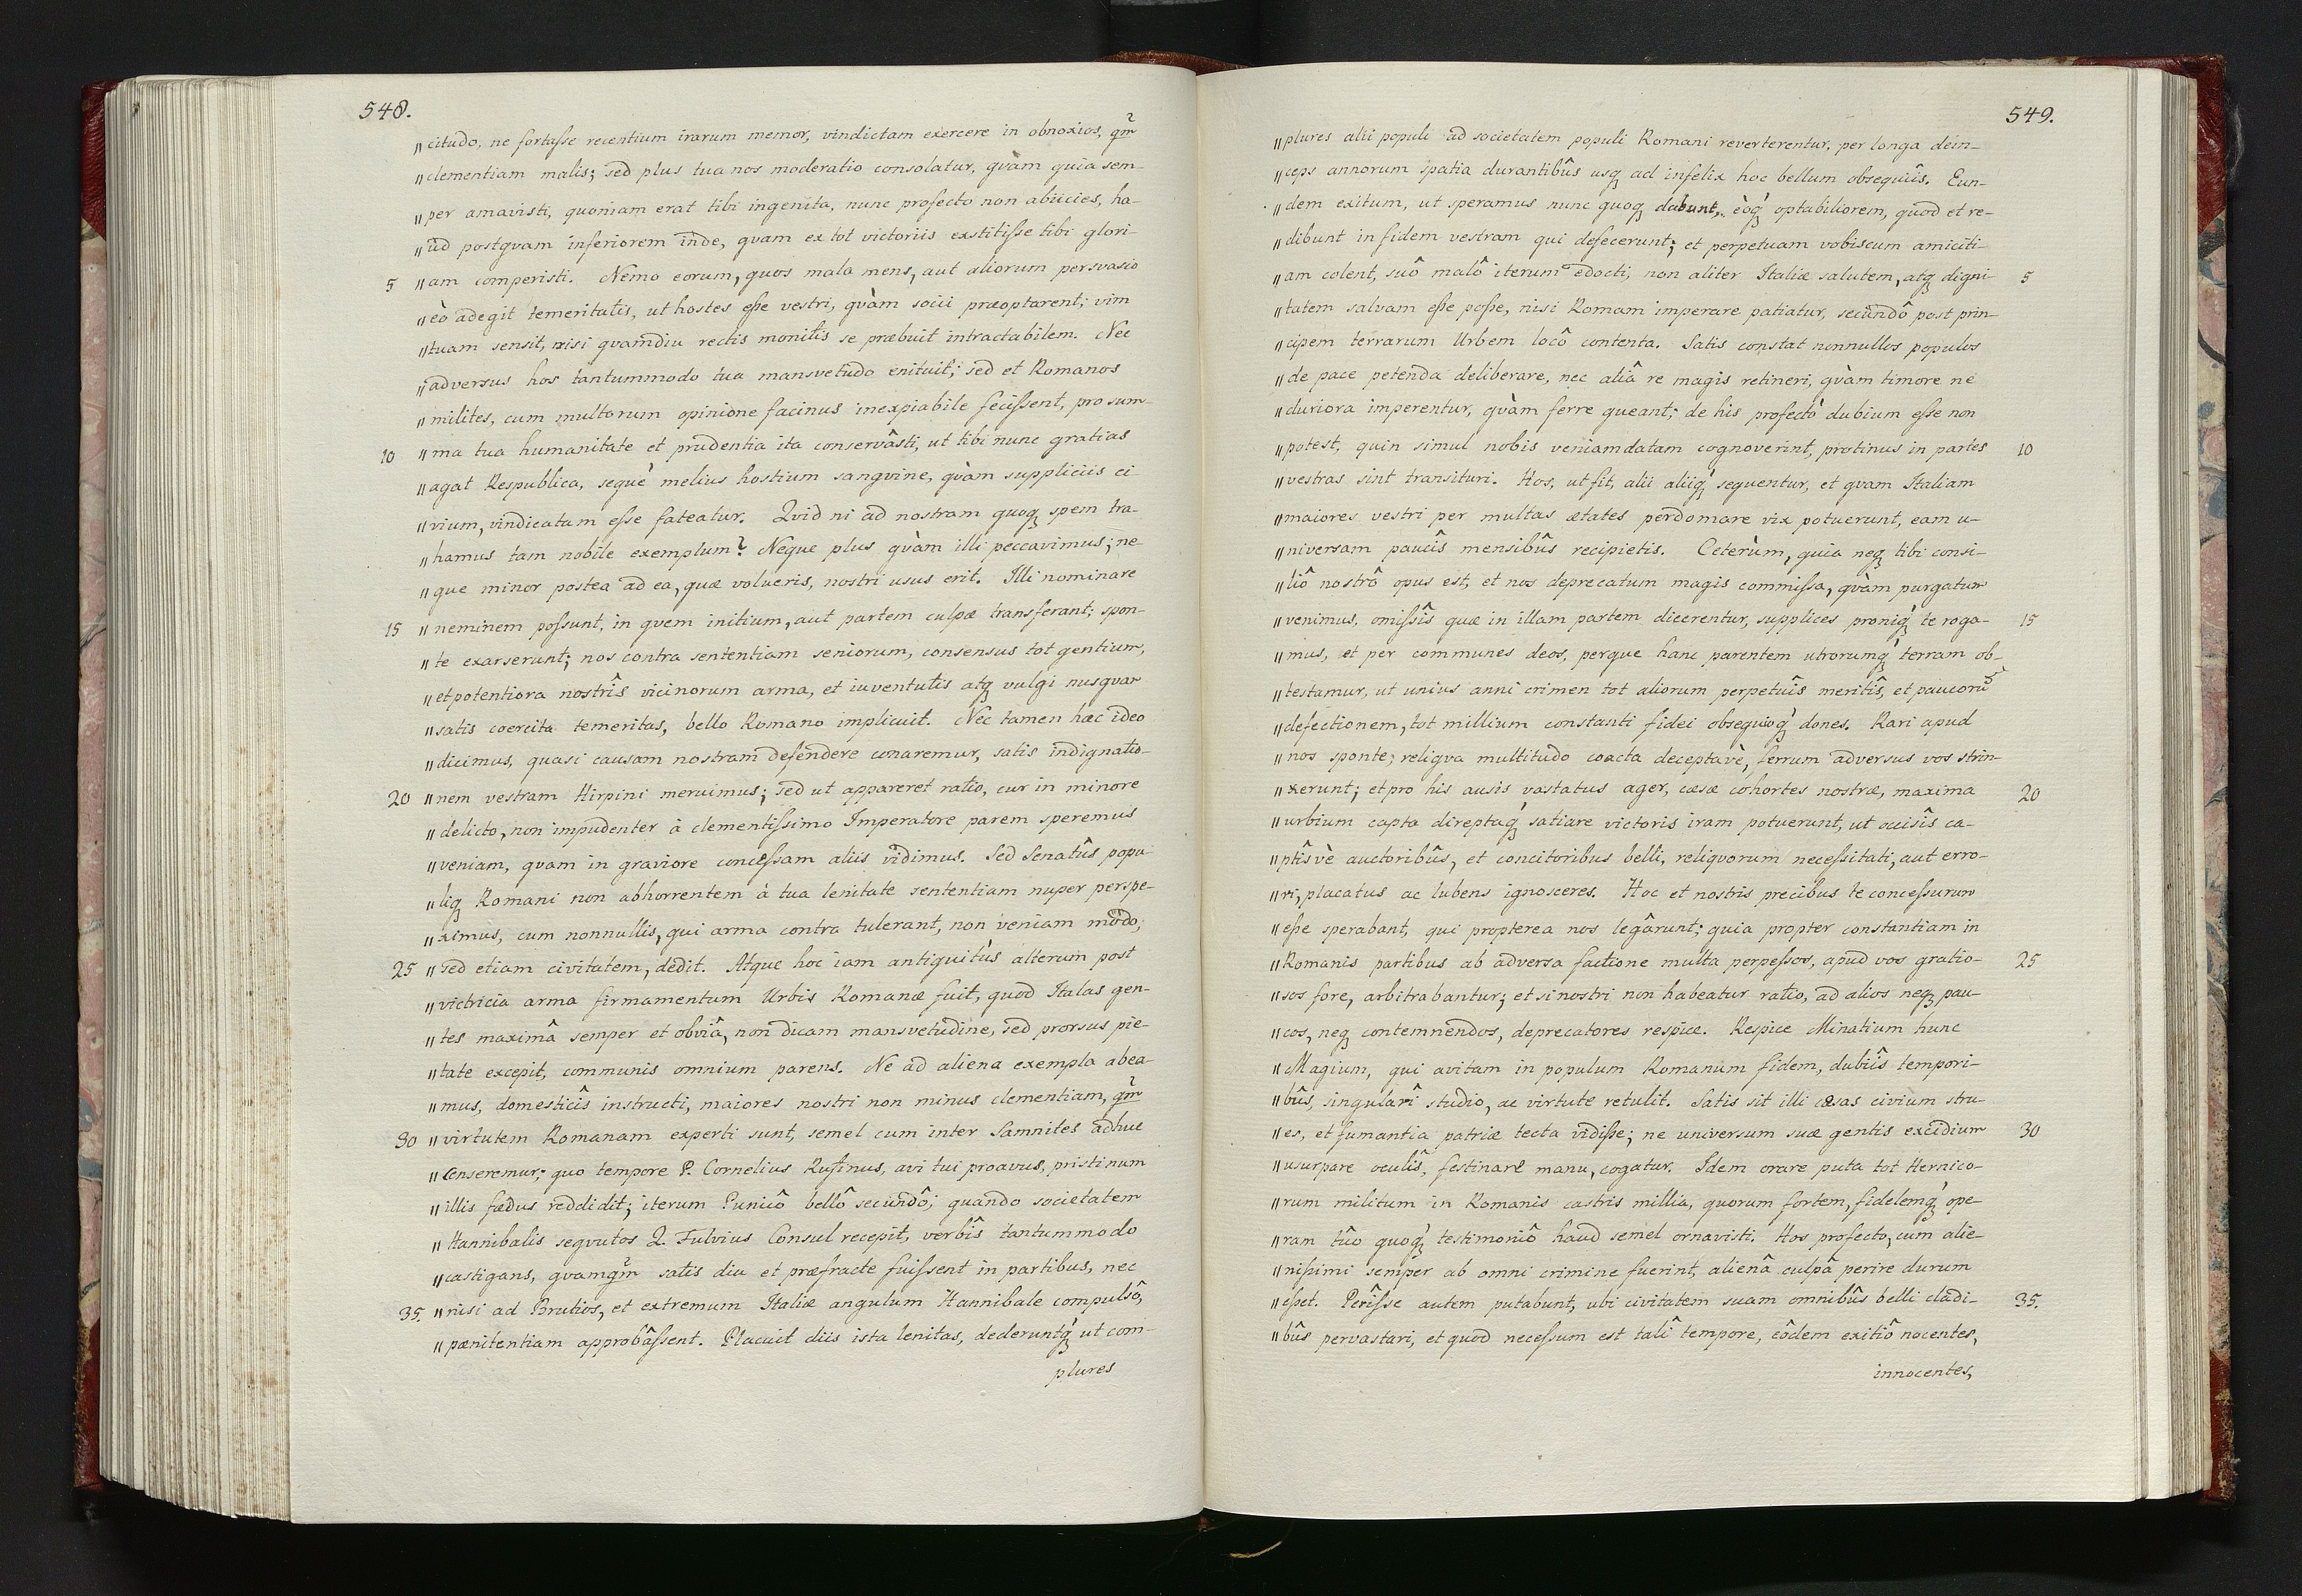 548.
„citudo, ne fortaſse recentium irarum memor, vindictam exercere in obnoxios, qm̃
„clementiam malis; sed plus tua nos moderatio consolatur, qvàm quia sem-
„per amavisti, quoniam erat tibi ingenita, nunc profecto non abiicies, ha-
„ud postqvam inferiorem inde, qvam ex tot victoriis exstitiſse tibi glori-
5 „am comperisti. Nemo eorum, quos mala mens, aut aliorum persvasio
„eò adegit temeritatis, ut hostes eſse vestri, qvàm socii præoptarent; vim
„tuam sensit, nisi qvamdiu rectis monitis se præbuit intractabilem. Nec
„adversus hos tantummodo tua mansvetudo enituit; sed et Romanos
„milites, cum multorum opinione facinus inexpiabile feciſsent, pro sum-
10 „ma tua humanitate et prudentia ita conservâsti, ut tibi nunc gratias
„agat Respublica, seqùe melius hostium sangvine, qvàm suppliciis ci-
„vium, vindicatam eſse fateatur. Qvid ni ad nostram quoq; spem tra-
„hamus tam nobile exemplum? Neque plus qvàm illi peccavimus; ne-
„que minor postea ad ea, quæ volueris, nostri usus erit. Illi nominare
15 „neminem poſsunt, in qvem initium, aut partem culpæ transferant; spon-
„te exarserunt; nos contra sententiam seniorum, consensus tot gentium,
„et potentiora nostrîs vicinorum arma, et iuventutis atq; vulgi nusqvam
„satis coercita temeritas, bello Romano implicuit. Nec tamen hæc ideo
„dicimus, quasi causam nostram defendere conaremur, satis indignatio-
20 „nem vestram Hirpini meruimus; sed ut appareret ratio, cur in minore
„delicto, non impudenter à clementiſsimo Imperatore parem speremus
„veniam, qvam in graviore conceſsam aliis vidimus. Sed Senatûs popu-
„liq; Romani non abhorrentem à tua lenitate sententiam nuper perspe-
„ximus, cum nonnullis, qui arma contra tulerant, non veniam modo;
25 „sed etiam civitatem, dedit. Atque hoc iam antiquitùs alterum post
„victricia arma firmamentum Urbis Romanæ fuit, quod Italas gen-
„tes maximâ semper et obviâ, non dicam mansvetudine, sed prorsus pie-
„tate excepit, communis omnium parens. Ne ad aliena exempla abea-
„mus, domesticîs instructi, maiores nostri non minus clementiam, qm̃
30 „virtutem Romanam experti sunt, semel cum inter Samnites adhuc
„censeremur; quo tempore P. Cornelius Rufinus, avi tui proavus, pristinum
„illis fœdus reddidit; iterum Punicô bellô secundô; quando societatem
„Hannibalis seqvutos Q. Fulvius Consul recepit, verbîs tantummodo
„castigans, qvamqm̃ satis diu et præfracte fuiſsent in partibus, nec
35. „nisi ad Brutios, et extremum Italiæ angulum Hannibale compulsô,
„pœnitentiam approbâſsent. Placuit diis ista lenitas, dederuntq́; ut com-
plures
549.
„plures alii populi ad societatem populi Romani reverterentur, per longa dein-
„ceps annorum spatia durantibûs usq; ad infelix hoc bellum obsequiîs. Eun-
„dem exitum, ut speramus nunc quoq; dabunt, èoq́; optabiliorem, quod et re-
„dibunt in fidem vestram qui defecerunt; et perpetuam vobiscum amiciti-
„am colent, suô malô iterum edocti, non aliter Italiæ salutem, atq; digni- 5
„tatem salvam eſse poſse, nisi Romam imperare patiatur, secundô post prin-
„cipem terrarum Urbem locô contenta. Satis constat nonnullos populos
„de pace petenda deliberare, nec aliâ re magis retineri, qvàm timore ne
„duriora imperentur, qvàm ferre queant; de his profectò dubium eſse non
„potest, quin simul nobis veniam datam cognoverint, protinus in partes 10
„vestras sint transituri. Hos, ut fit, alii aliiq́; sequentur, et qvam Italiam
„maiores vestri per multas ætates perdomare vix potuerunt, eam u-
„niversam paucîs mensibûs recipietis. Ceterùm, quia neq; tibi consi-
„liô nostrô opus est, et nos deprecatum magis commiſsa, qvàm purgatum
„venimus, omiſsîs quæ in illam partem dicerentur, supplices proniq́; te roga- 15
„mus, et per communes deos, perque hanc parentem utrorumq́; terram ob-
„testamur, ut unius anni crimen tot aliorum perpetuîs meritîs, et paucorũ
„defectionem, tot millium constanti fidei obsequioq́; dones. Rari apud
„nos sponte; reliqva multitudo coacta deceptavè, ferrum adversus vos strin-
„xerunt; et pro his ausis vastatus ager, cæsæ cohortes nostræ, maxima 20
„urbium capta direptaq́; satiare victoris iram potuerunt, ut occisîs ca-
„ptîsvè auctoribûs, et concitoribus belli, reliquorum neceſsitati, aut erro-
„ri, placatus ac lubens ignosceres. Hoc et nostris precibus te conceſsurum
„eſse sperabant, qui propterea nos legârunt; quia propter constantiam in
„Romanis partibus ab adversa factione multa perpeſsos, apud vos gratio- 25
„sos fore, arbitrabantur; et si nostri non habeatur ratio, ad alios neq; pau-
„cos, neq; contemnendos, deprecatores respice. Respice Minatium hunc
„Magium, qui avitam in populum Romanum fidem, dubiîs tempori-
„bûs, singularî studio, ac virtute retulit. Satis sit illi cæsas civium stru-
„es, et fumantia patriæ tecta vidiſse; ne universum suæ gentis excidium 30
„usurpare oculîs, festinare manu, cogatur. Idem orare puta tot Hernico-
„rum militum in Romanis castris millia, quorum fortem, fidelemq́; ope-
„ram tûo quoq́; testimoniô haud semel ornavisti. Hos profecto, cum alie-
„niſsimi semper ab omni crimine fuerint, alienâ culpâ perire durum
„eſset. Perîſse autem putabunt, ubi civitatem suam omnibûs belli cladi- 35.
„bûs pervastari, et quod neceſsum est talî tempore, eôdem exitiô nocentes,
innocentes,